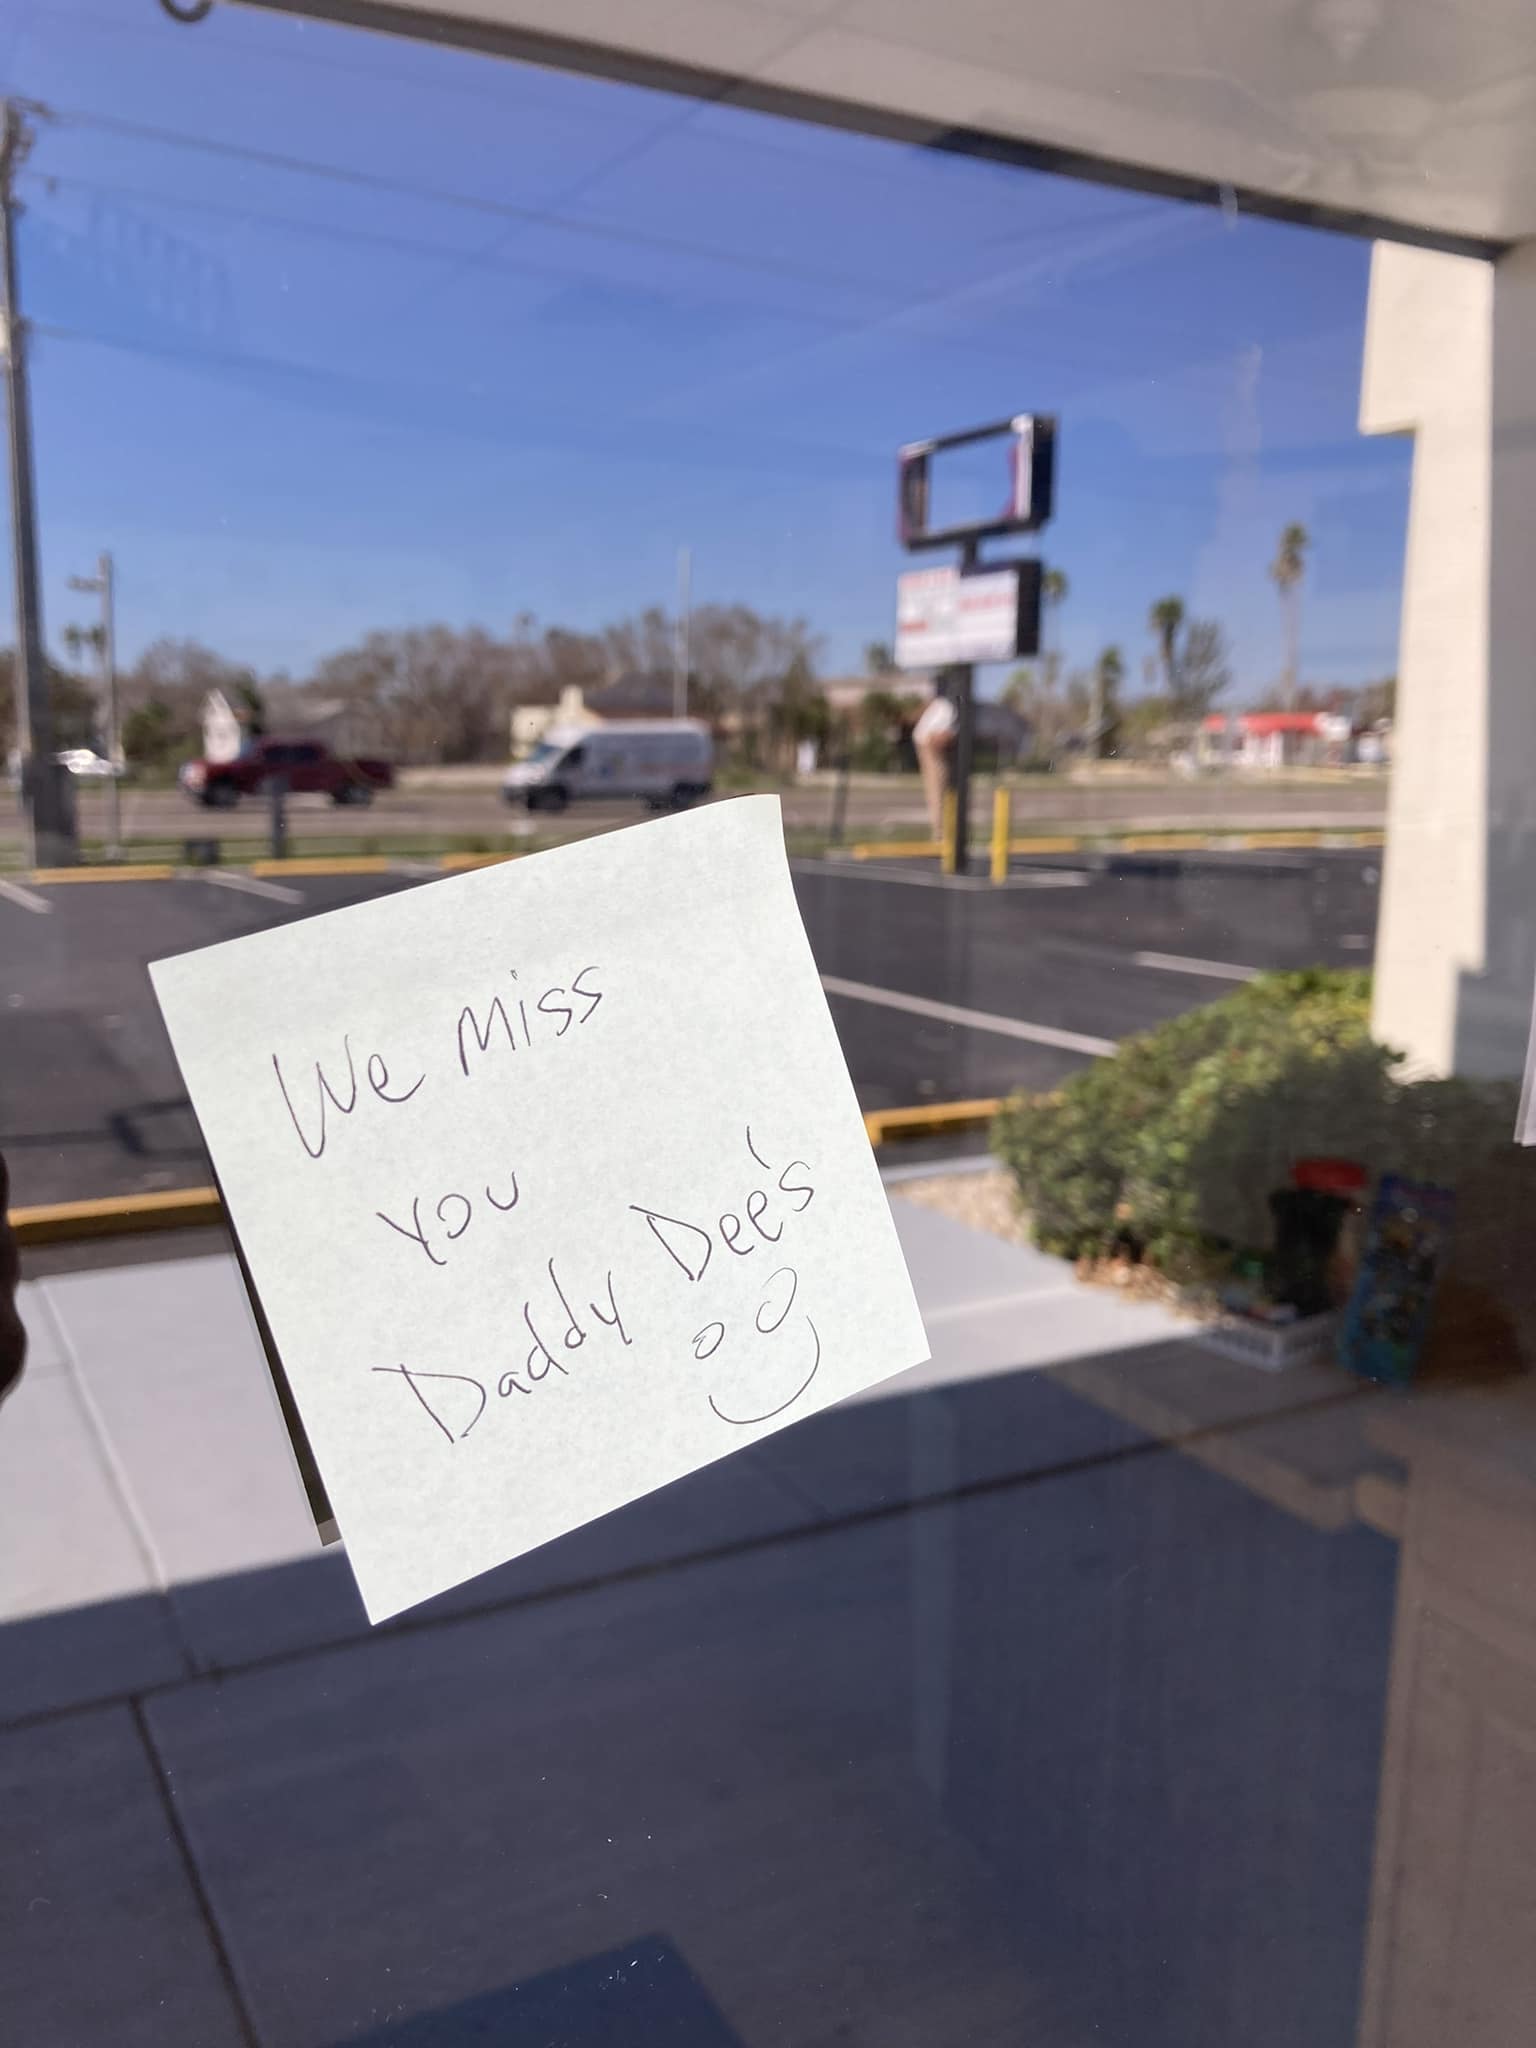 We Miss
You
Daddy Dee's